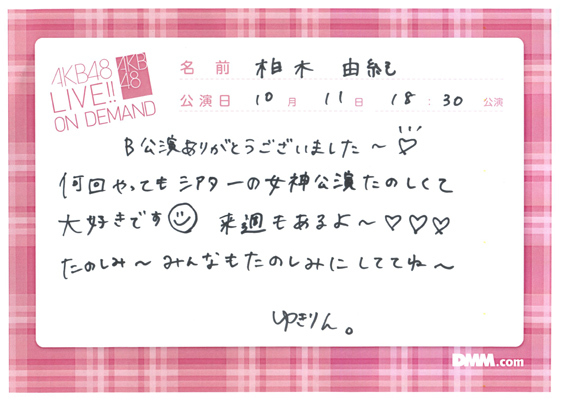 AKB48
LIVE!!
ON DEMAND
AKB
48
名前 柏木 由紀
公演日 10月 11日 18:30 公演
B公演ありがとうございました〜♡
何回やってもシアターの女神公演たのしくて
大好きです☺ 来週もあるよ〜♡♡♡
たのしみ〜みんなもたのしみにしててね〜
ゆきりん。
DMM.com